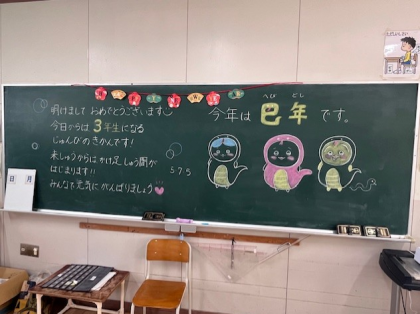 明けまして おめでとうございます
今日からは 3年生になる
じゅんびのきかんです!
来しゅうからは かけ足しゅう間が
はじまります!!
みんなで元気にがんばりましょう
575
今年は 巳年 です。
へび どし
日 月